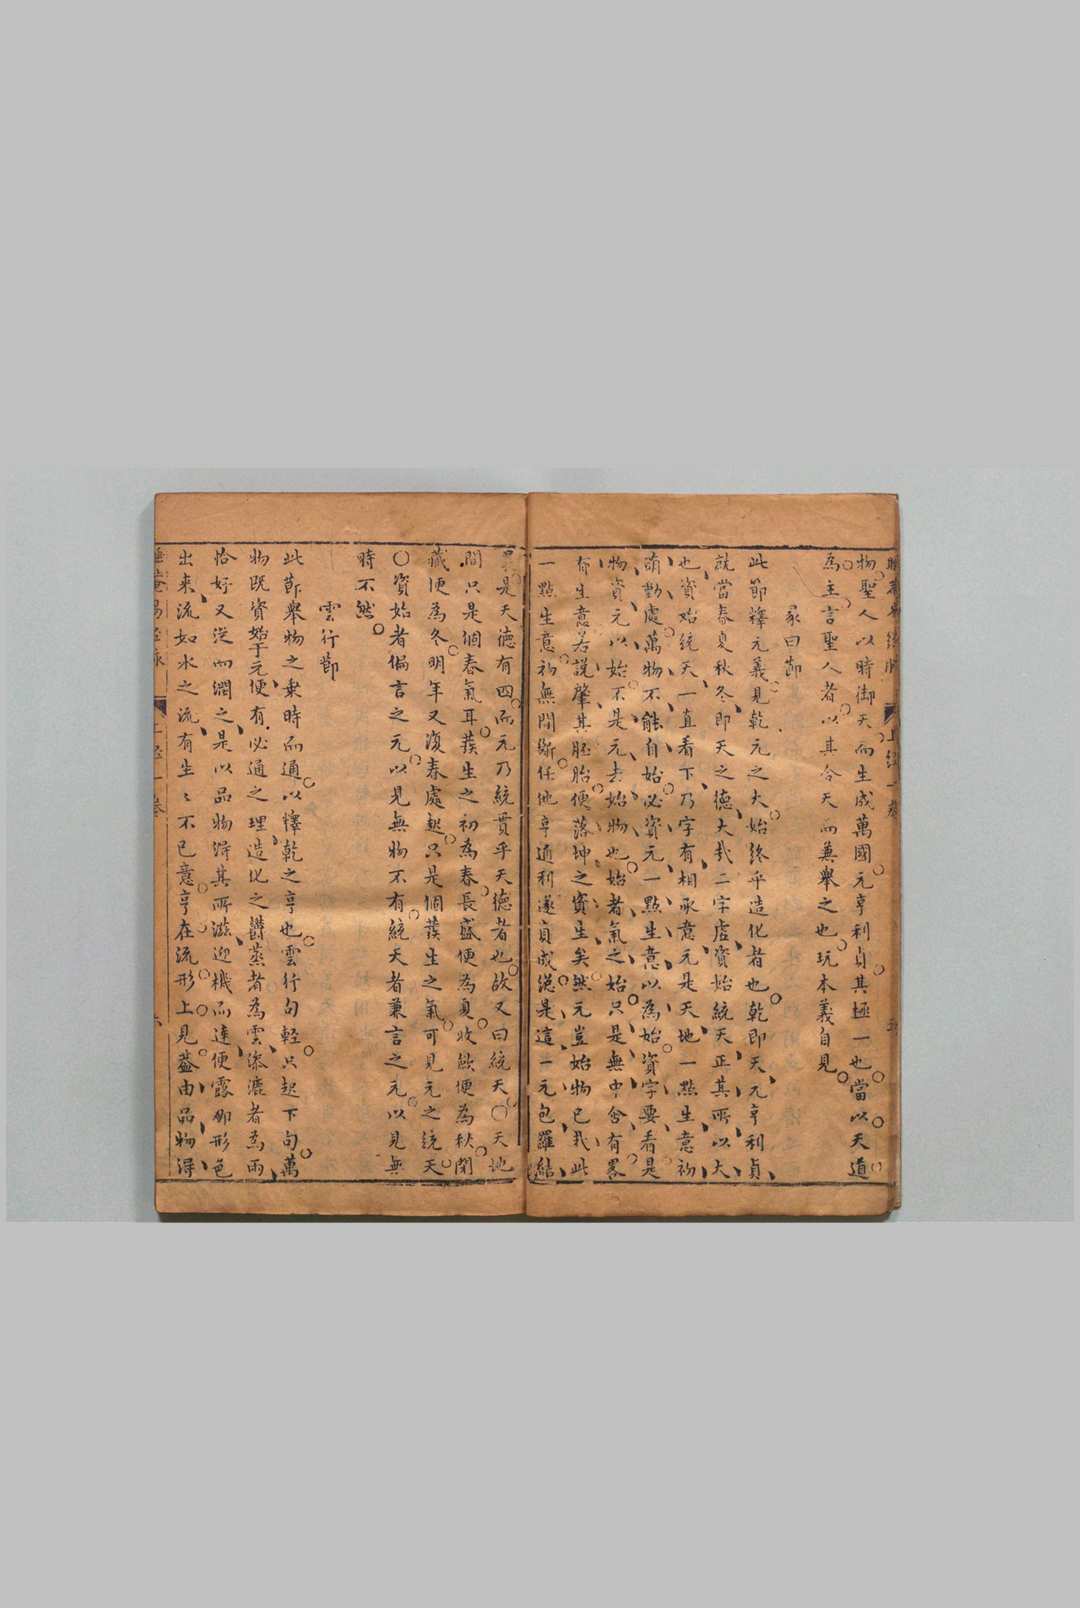 物聖人以時御天而生成萬國元亨利貞其極一也當以天道
為主言聖人者以其合天而兼舉之也玩本義自見
彖曰節
此節釋元義見乾元之大始終乎造化者也乾即天元亨利貞
就當春夏秋冬即天之德大哉二字虛資始統天正其所以大
也資始統天一直看下乃字有相承意元是天地一點生意初
萌動處萬物不能自始必資元一點生意以為始資字要看是
物資元以始不是元去始物也始者氣之始只是無中含有畧
有生意若說肇其胚胎便落坤之資生矣然元豈始物已哉此
一點生意初無間斷任他亨通利遂貞成總是這一元包羅結
是天德有四而元乃統貫乎天德者也故又曰統天〇天地
間只是個春氣耳發生之初為春長盛便為夏收斂便為秋閉
藏便為冬明年又復春處起只是個發生之氣可見元之統天
〇資始者偏言之元以見無物不有統天者兼言之元以見無
時不然
雲行節
此節舉物之乗時而通以釋乾之亨也雲行句輕只起下句萬
物既資始于元便有必通之理造化之欝蒸者為雲滲漉者為雨
恰好又從而潤之是以品物得其所滋迎機而達便露卻形色
出來流如水之流有生〻不已意亨在流形上見葢由品物得
易經